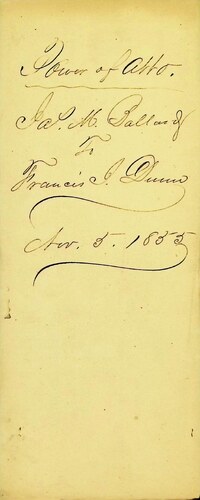 Power of Atto.
Jas. M. Ballard
To
Francis J. Dunn
Nov. 5. 1855